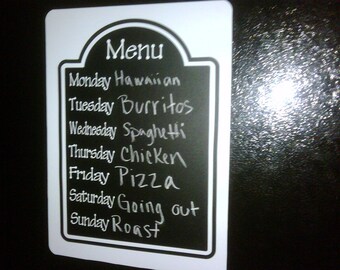 Menu
Monday Hawaiian
Tuesday Burritos
Wednesday Spaghetti
Thursday Chicken
Friday Pizza
Saturday Going out
Sunday Roast